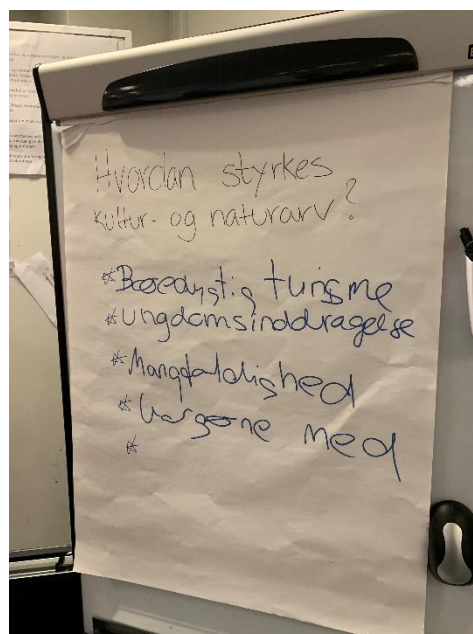 Hvordan styrkes
kultur- og naturarv?
* Bæredygtig turisme
* Ungdomsinddragelse
* Mangfoldighed
* borgerne med
*